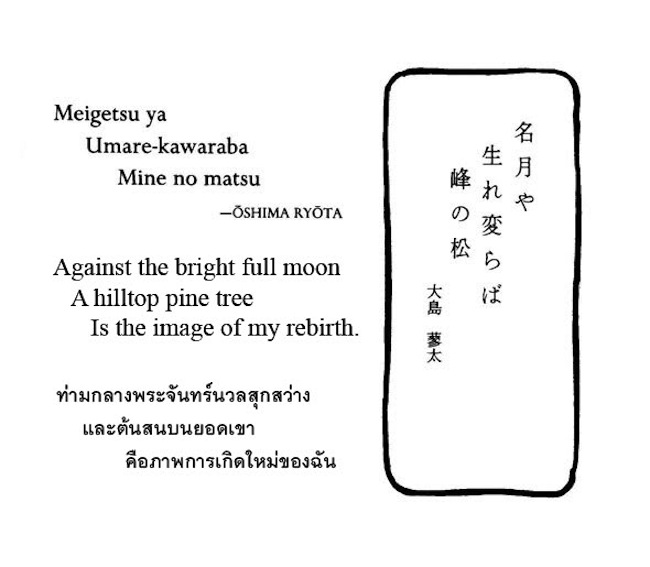 Meigetsu ya
Umare-kawaraba
Mine no matsu
—ŌSHIMA RYŌTA
Against the bright full moon
A hilltop pine tree
Is the image of my rebirth.
ท่ามกลางพระจันทร์นวลสุกสว่าง
และต้นสนบนยอดเขา
คือภาพการเกิดใหม่ของฉัน
名月や
生れ変らば
峰の松
大島 蓼太